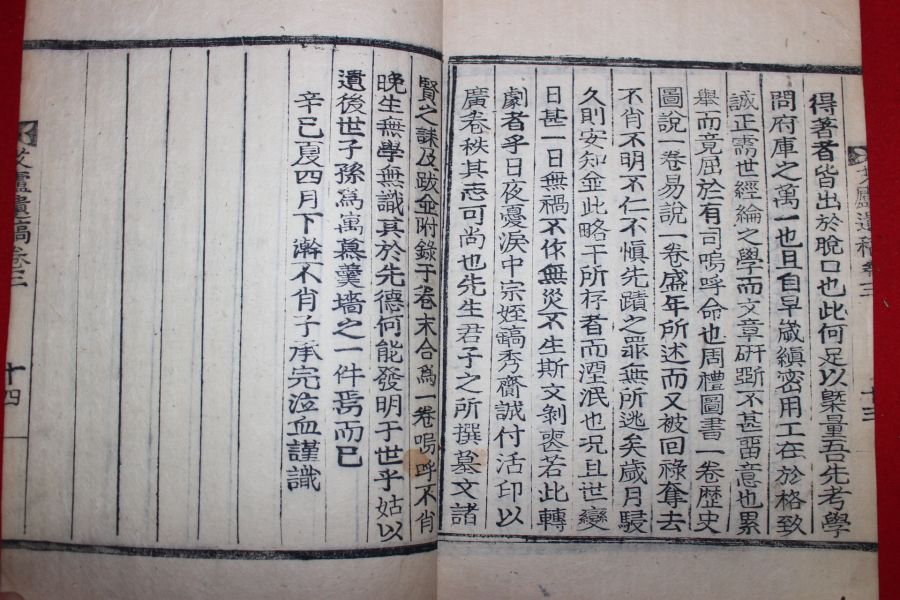 得著者皆出於脫口也此何足以槩量吾先考學
問府庫之萬一也且自早歲縝密用工在於格致
誠正需世經綸之學而文章研斲不甚留意也累
舉而竟屈於有司嗚呼命也周禮圖書一卷歷史
圖說一卷易說一卷盛年所述而又被回祿奪去
不肖不明不仁不愼先蹟之罪無所逃矣歲月駸
久則安知並此略干所存者而湮泯也况且世變
日甚一日無禍不依無災不生斯文剝喪若此轉
劇者乎日夜憂淚中宗姪鎬秀齎誠付活印以
廣卷秩其志可尚也先生君子之所撰墓文諸
賢之誄及跋並附錄于卷末合爲一卷嗚呼不肖
晩生無學無識其於先德何能發明于世乎姑以
遺後世子孫爲寓慕羹墻之一件焉而已
辛巳夏四月下澣不肖子承完泣血謹識
廬遺稿卷之二
十三
廬遺稿卷之二
十四